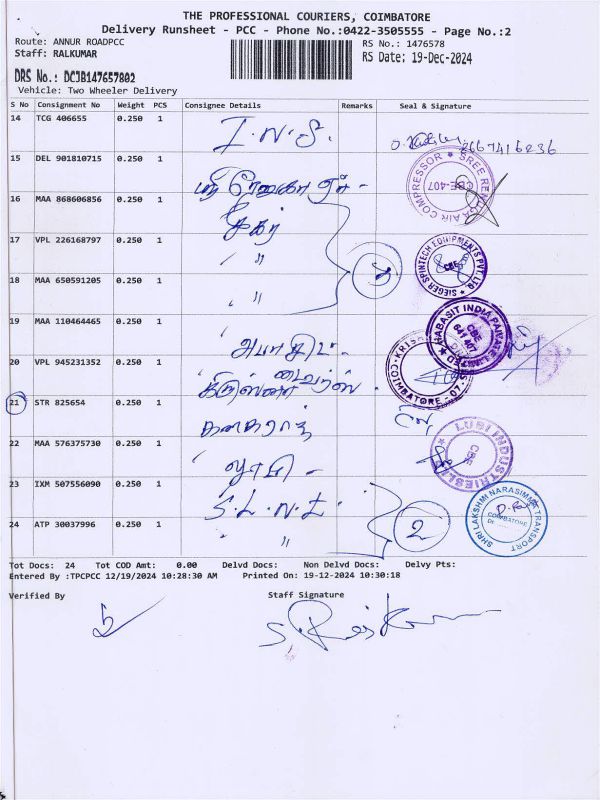 THE PROFESSIONAL COURIERS, COIMBATORE
Delivery Runsheet - PCC - Phone No.:0422-3505555 - Page No.:2
Route: ANNUR ROADPCC
RS No.: 1476578
Staff: RALKUMAR
RS Date: 19-Dec-2024
DRS No.: DCJB147657802
Vehicle: Two Wheeler Delivery
S No Consignment No Weight PCS Consignee Details Remarks Seal & Signature
14 TCG 406655 0.250 1 I.N.S.
15 DEL 901810715 0.250 1 ஸ்ரீ ரேணுகா ஏர் -
SREE RENUGA AIR COMPRESSOR CBE-407
16 MAA 868606856 0.250 1
17 VPL 226168797 0.250 1 "
SIEGER SPINTECH EQUIPMENTS PVT. LTD. CBE
18 MAA 650591205 0.250 1 "
19 MAA 110464465 0.250 1
HABASIT INDIA PRIVATE LIMITED CBE 641 407
20 VPL 945231352 0.250 1
COIMBATORE
21 STR 825654 0.250 1
22 MAA 576375730 0.250 1
LUBI INDUSTRIES LLP CBE
23 IXM 507556090 0.250 1 S.L.N.T.
24 ATP 30037996 0.250 1 " 2
SHRI LAKSHMI NARASIMMA TRANSPORT COIMBATORE
Tot Docs: 24 Tot COD Amt: 0.00 Delvd Docs: Non Delvd Docs: Delvy Pts:
Entered By :TPCPCC 12/19/2024 10:28:30 AM Printed On: 19-12-2024 10:30:18
Verified By Staff Signature
S. Rajkumar